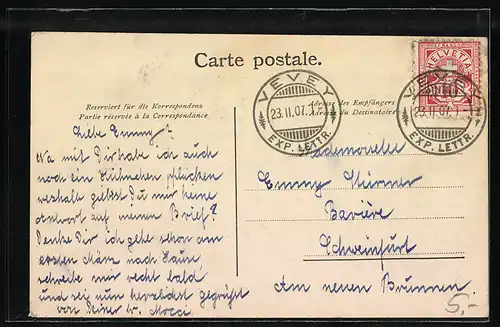 Carte postale.
Reserviert für die Korrespondenz
Partie réservée à la Correspondance
Adresse des Empfängers
Adresse du Destinataire
FRANCO
HELVETIA
10
VEVEY
23.II.07. 1-
EXP. LETTR.
VEVEY
23.II.07. 1-
EXP. LETTR.
Liebe Emmy!
Na mit Dir habe ich auch
noch ein Hühnchen pflücken
weshalb giebst Du mir keine
Antwort auf meinen Brief?
Denke Dir ich gehe schon am
ersten März nach Hause
schreibe mir recht bald
und sei nun herzlichst gegrüßt
von Deiner
Mademoiselle
Emmy
Bavière
Schweinfurt
Am neuen Brunnen
5,-